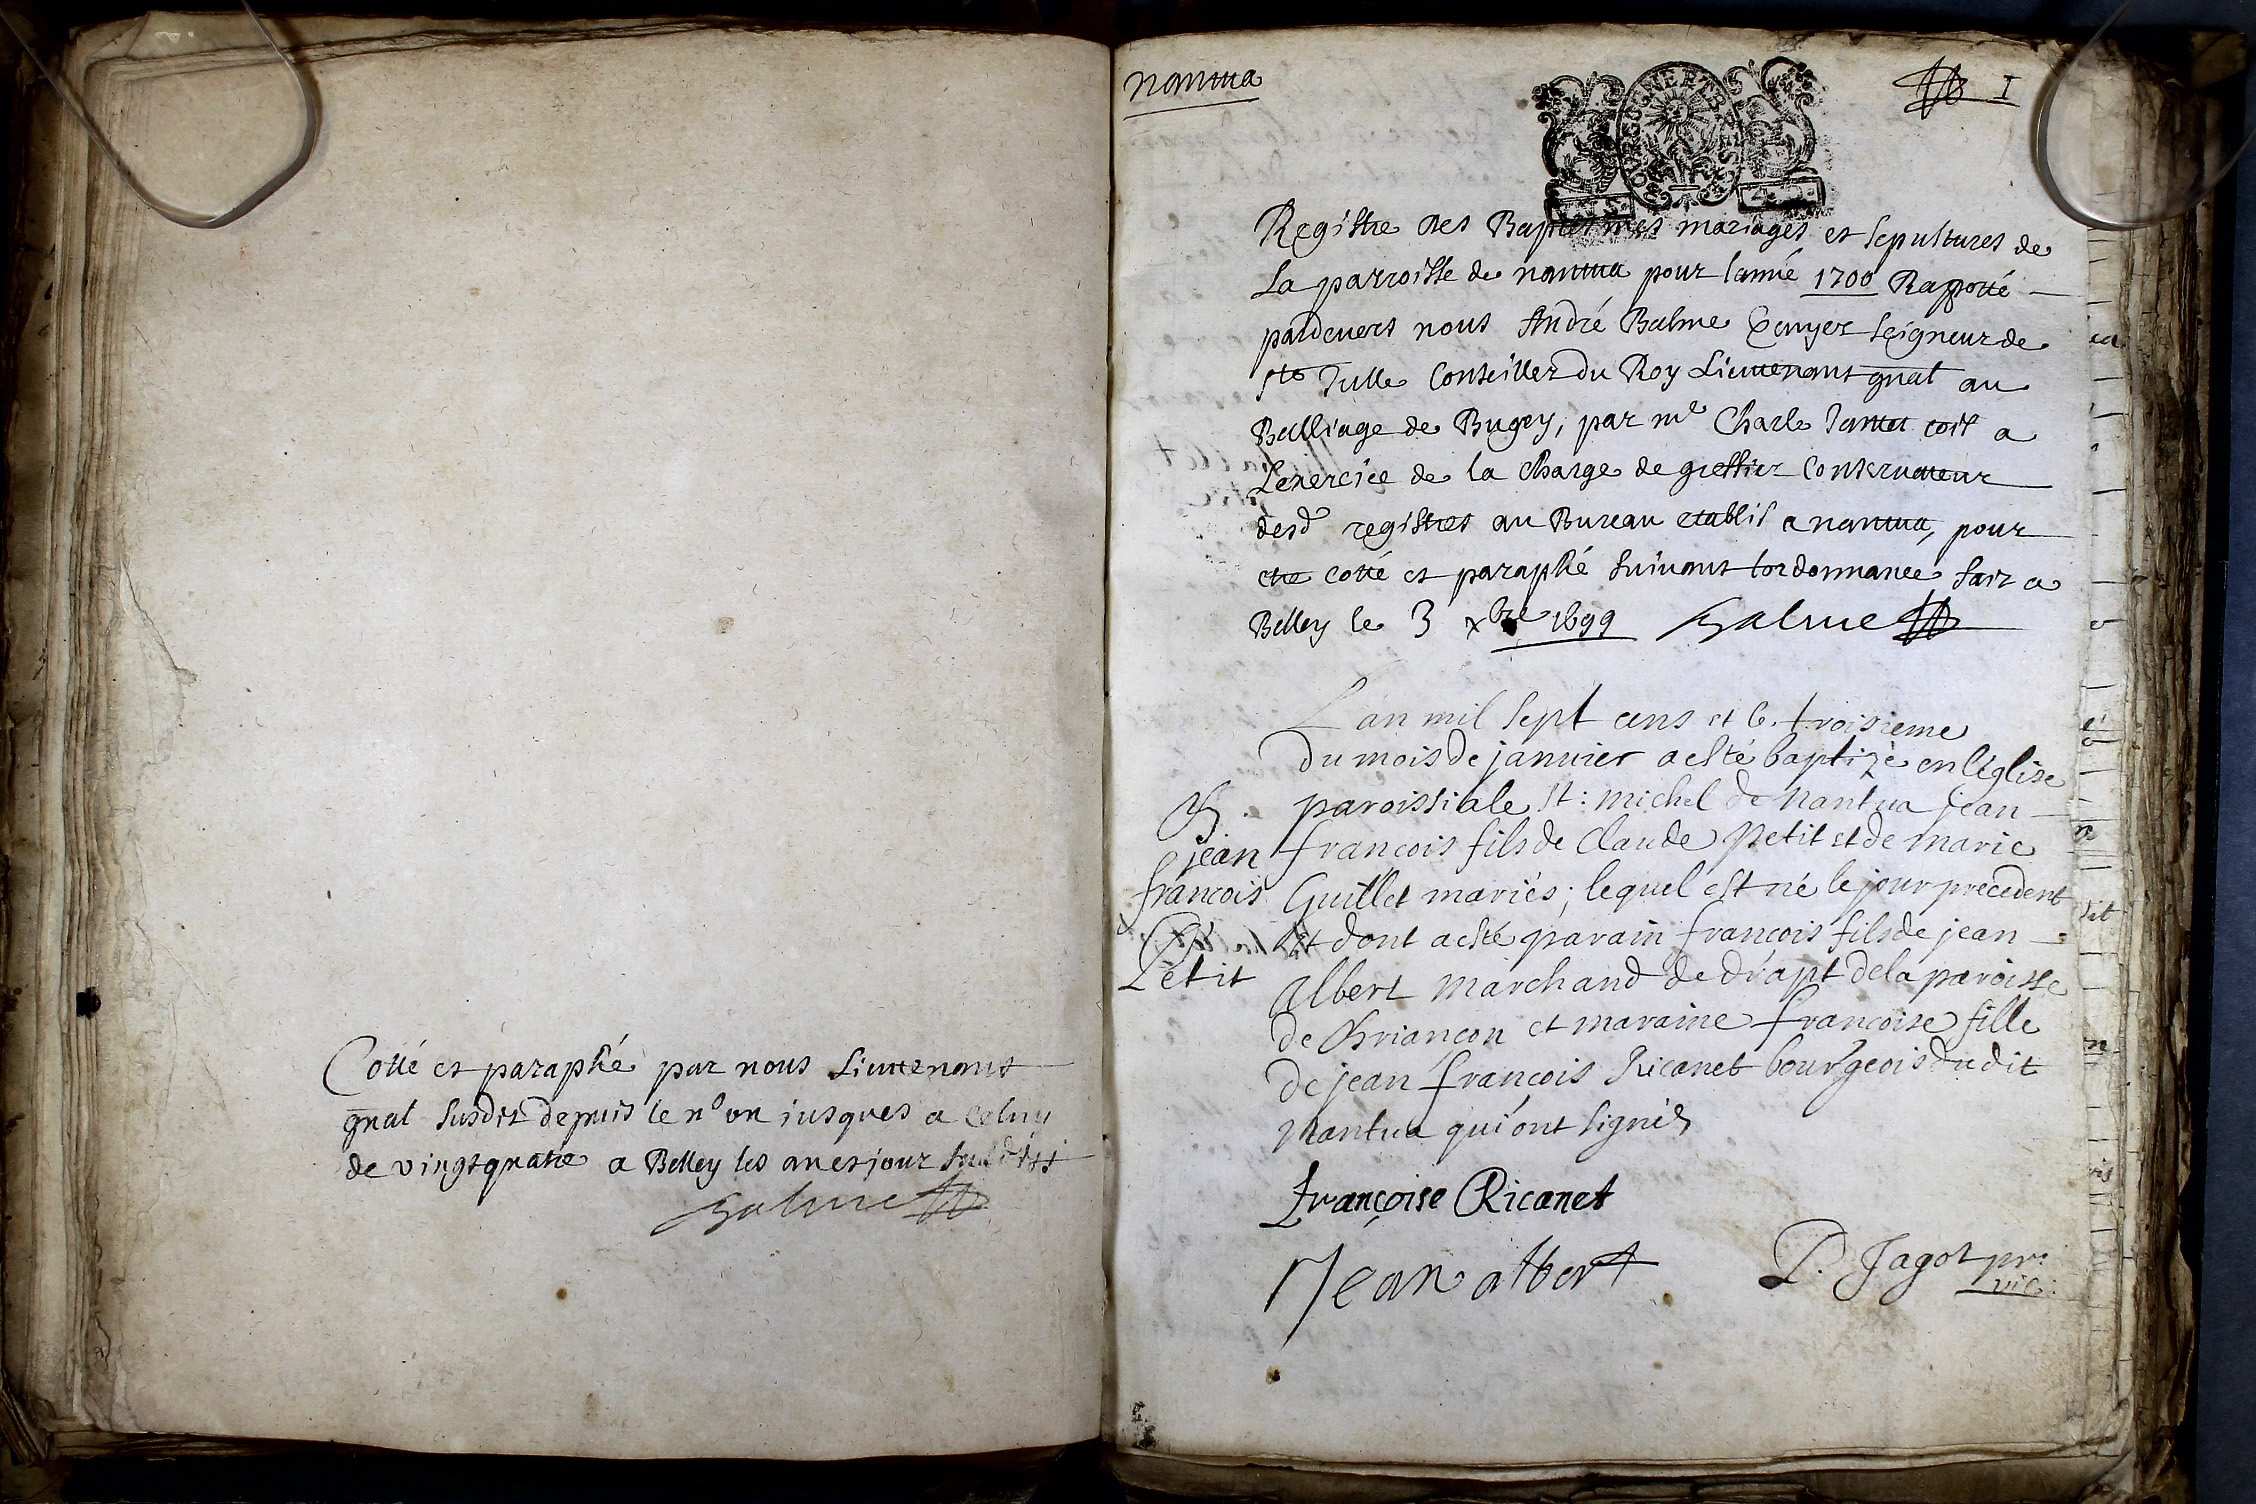 Cotté et paraphé par nous Lieutenant
gnal susdit depuis le n° un jusques a Celuy
de vingt quatre a Belley les an et jour susdits
Balme
nantua
1
Registre des Baptesmes mariages et sepultures de
La parroisse de nantua pour l'année 1700 Rapporté
pardevers nous André Balme Ecuyer seigneur de
ste Julle Conseiller du Roy Lieutenant gnal au
Balliage de Bugey, par me Charle Jantet
a
L'exercice de la charge de greffier Conservateur
desd registres au Bureau etablit a nantua, pour
etre cotté et paraphé suivant l'ordonnance fait a
Belley le 3 xbre 1699 Balme
L'an mil sept cens et le troisieme
du mois de janvier a esté baptizé en l'église
paroissiale St: Michel de Nantua jean
francois fils de Claude Petit et de Marie
Guillet mariés; lequel est né le jour precedent
et dont a esté parain francois fils de jean
Albert Marchand de drapt de la paroisse
de Briançon et maraine francoise fille
de jean françois Ricanet bourgeois du dit
Nantua qui ont signés
B.
jean
francois
Petit
Françoise Ricanet
Jean albert
P. Jagot pr:
vic: